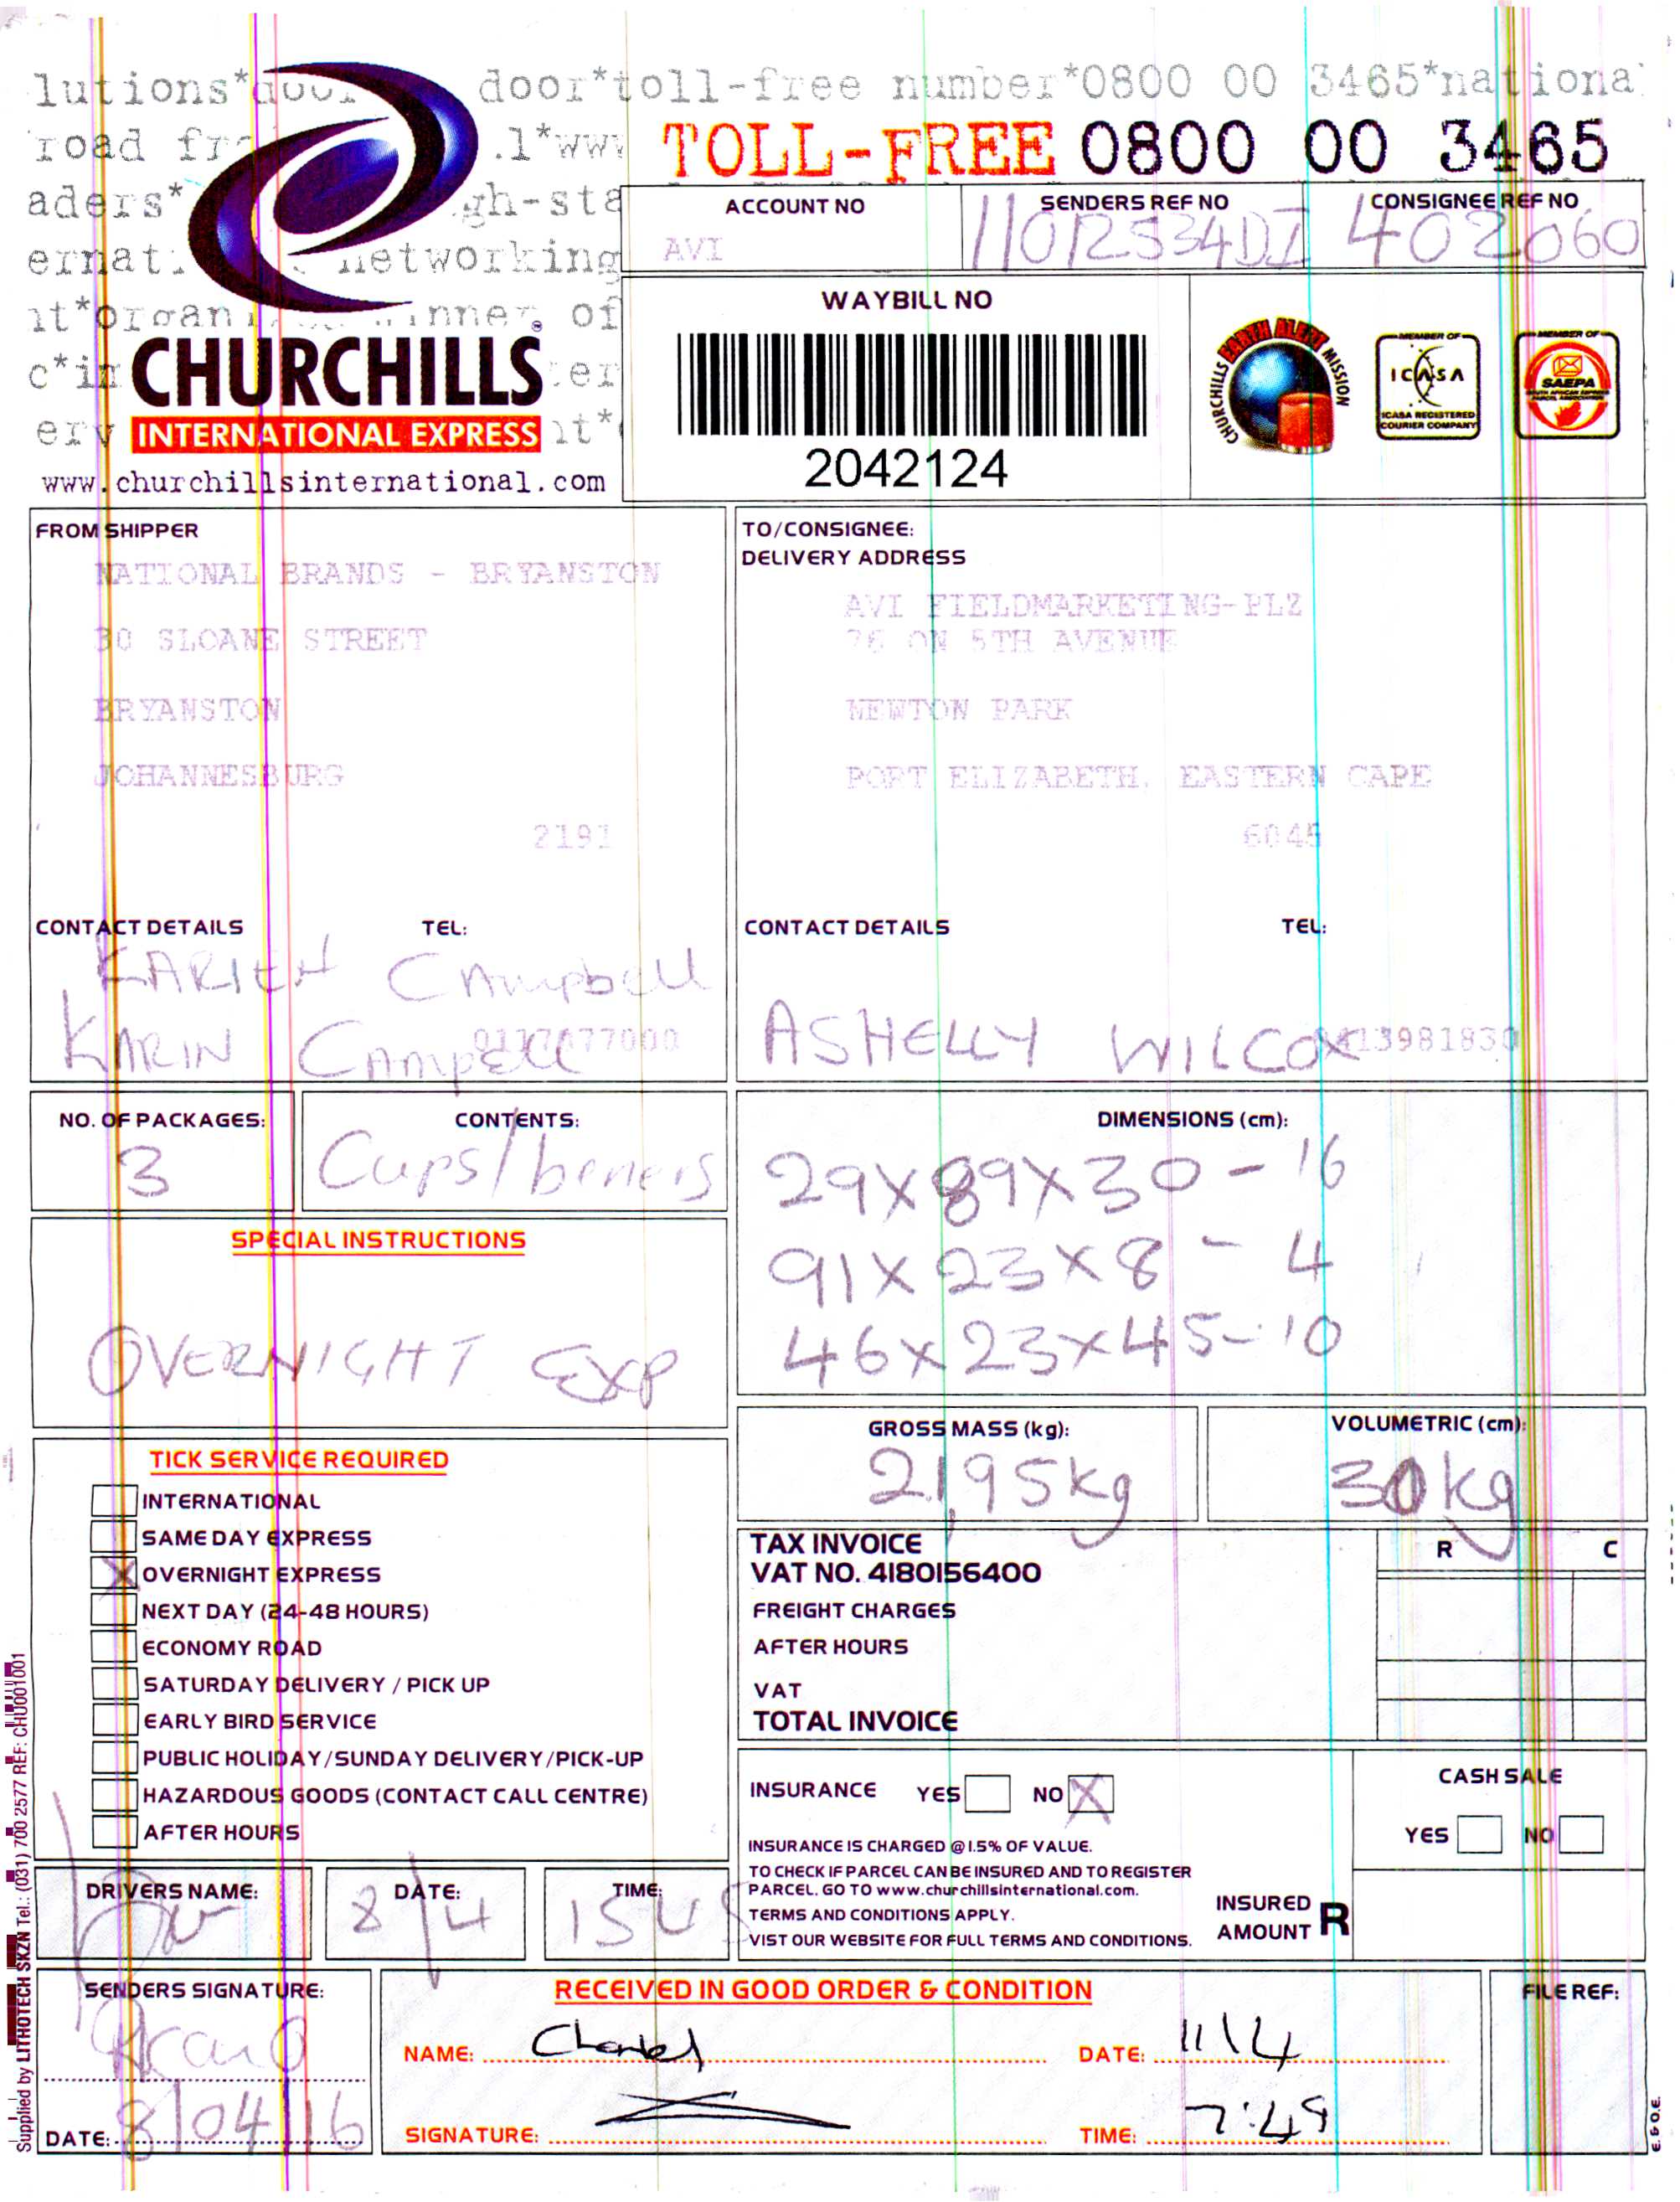 lutions*door door*toll-free number*0800 00 3465*national
road .l*www
TOLL-FREE 0800 00 3465
aders* gh-sta
ACCOUNT NO
AVI
SENDERS REF NO
CONSIGNEE REF NO
402060
networking
of
CHURCHILLS
INTERNATIONAL EXPRESS
www.churchillsinternational.com
WAYBILL NO
2042124
CHURCHILLS EARTH ALERT MISSION
MEMBER OF
ICASA
ICASA REGISTERED
COURIER COMPANY
MEMBER OF
SAEPA
SOUTH AFRICAN EXPRESS
PARCEL ASSOCIATION
FROM SHIPPER
NATIONAL BRANDS - BRYANSTON
30 SLOANE STREET
BRYANSTON
JOHANNESBURG
2191
TO/CONSIGNEE:
DELIVERY ADDRESS
AVI FIELDMARKETING-PLZ
76 ON 5TH AVENUE
NEWTON PARK
PORT ELIZABETH, EASTERN CAPE
6045
CONTACT DETAILS TEL:
Campbell
KARIN Campell 0117077000
CONTACT DETAILS TEL:
ASHELLY WILCOX 0413981830
NO. OF PACKAGES:
3
CONTENTS:
Cups/beners
DIMENSIONS (cm):
29x89x30-16
91x23x8-4
46x23x45-10
SPECIAL INSTRUCTIONS
OVERNIGHT EXP
GROSS MASS (kg):
21,95kg
VOLUMETRIC (cm):
30kg
TICK SERVICE REQUIRED
INTERNATIONAL
SAME DAY EXPRESS
X OVERNIGHT EXPRESS
NEXT DAY (24-48 HOURS)
ECONOMY ROAD
SATURDAY DELIVERY / PICK UP
EARLY BIRD SERVICE
PUBLIC HOLIDAY/SUNDAY DELIVERY/PICK-UP
HAZARDOUS GOODS (CONTACT CALL CENTRE)
AFTER HOURS
TAX INVOICE
VAT NO. 4180156400
R C
FREIGHT CHARGES
AFTER HOURS
VAT
TOTAL INVOICE
INSURANCE YES NO X
INSURANCE IS CHARGED @ 1.5% OF VALUE.
TO CHECK IF PARCEL CAN BE INSURED AND TO REGISTER
PARCEL. GO TO www.churchillsinternational.com.
TERMS AND CONDITIONS APPLY.
VIST OUR WEBSITE FOR FULL TERMS AND CONDITIONS.
INSURED
AMOUNT R
CASH SALE
YES NO
DRIVERS NAME:
DATE:
8/4
TIME:
1545
SENDERS SIGNATURE:
DATE: 8/04/16
RECEIVED IN GOOD ORDER & CONDITION
NAME: DATE: 11/4
SIGNATURE: TIME: 7:49
FILE REF:
E. & O.E.
Supplied by LITHOTECH SKZN Tel.: (031) 700 2577 REF: CHU001001